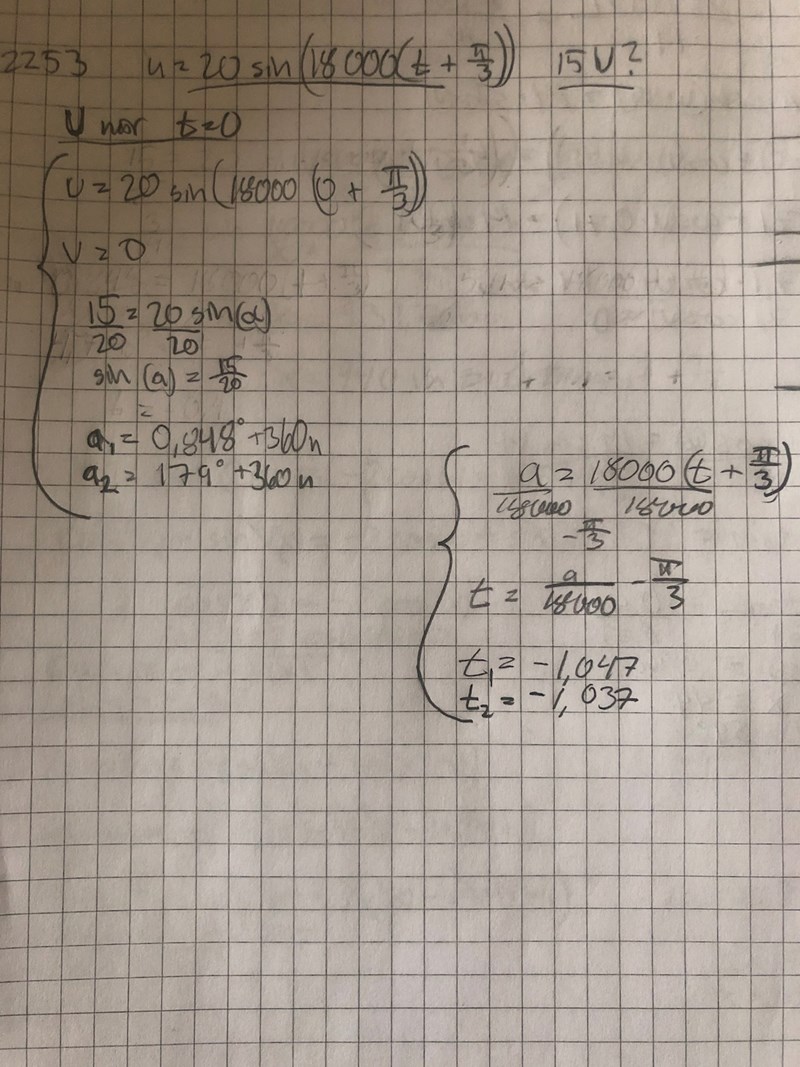 2253 u = 20 sin(18000(t + π/3)) 15 V?
U när t=0
U = 20 sin(18000 (0 + π/3))
U = 0
15/20 = 20 sin(a)/20
sin (a) = 15/20
=
a₁ = 0,848° + 360n
a₂ = 179° + 360n
a/18000 = 18000(t + π/3)/18000
- π/3
t = a/18000 - π/3
t₁ = -1,047
t₂ = -1,037